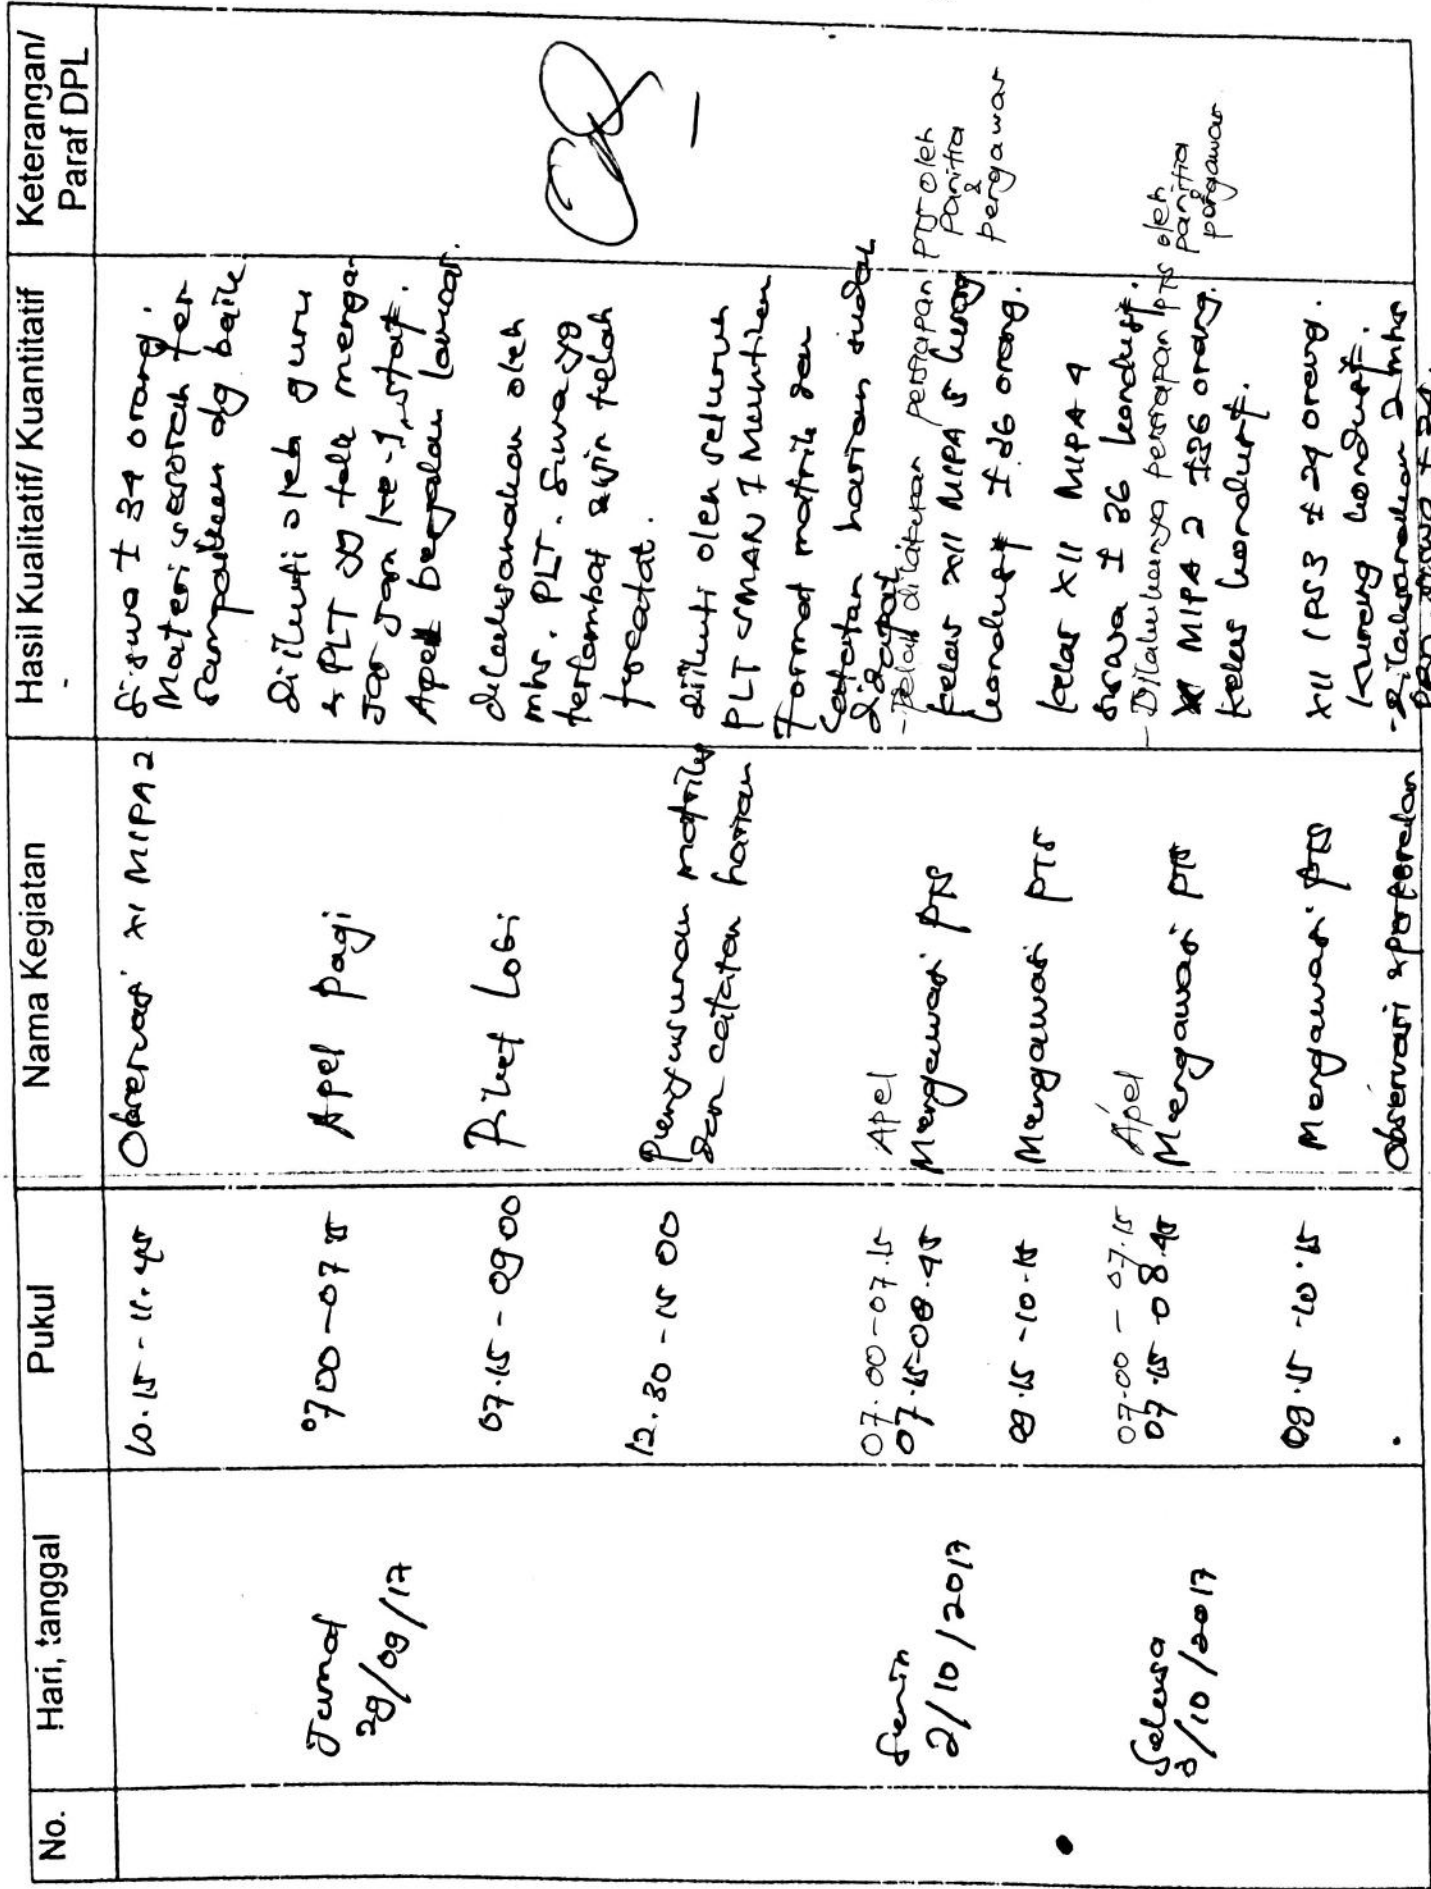 No.
Hari, tanggal
Pukul
Nama Kegiatan
Hasil Kualitatif/ Kuantitatif
Keterangan/
Paraf DPL
10.15 - 11.45
Observasi XI MIPA 2
Siswa ± 34 orang.
Materi seperti ter
sampaikan dg baik
Jumat
29/09/17
07 00 - 07 15
Apel pagi
Diikuti oleh guru
& PLT yg tdk menga
jar jam ke-1, staf.
Apel berjalan lancar.
07.15 - 09 00
Piket Lobi
dilaksanakan oleh
mhs. PLT. Siswa yg
terlambat & ijin telah
tercatat.
12.30 - 15 00
Penyusunan matriks
dan catatan harian
diikuti oleh seluruh
PLT SMAN 1 Muntilan
Format matrik dan
catatan harian sudah
didapat
Senin
2/10/2017
07.00-07.15
Apel
-Telah dilakukan persiapan PTS oleh
panitia
&
pengawas
07.15-08.45
Mengawasi PTS
kelas XII MIPA 5 kurang
kondusif ± 36 orang.
09.15 - 10.15
Mengawasi PTS
kelas XII MIPA 4
siswa ± 36 kondusif.
Selasa
3/10/2017
07.00 - 07.15
Apel
-Dilakukannya persiapan PTS oleh
panitia
&
pengawas
07.15 - 08.45
Mengawasi PTS
XI MIPA 2 ±36 orang.
kelas kondusif.
09.15 - 10.15
Mengawasi PTS
XII IPS 3 ± 24 orang.
Kurang kondusif.
Observasi
-Dilaksanakan 2 mhs